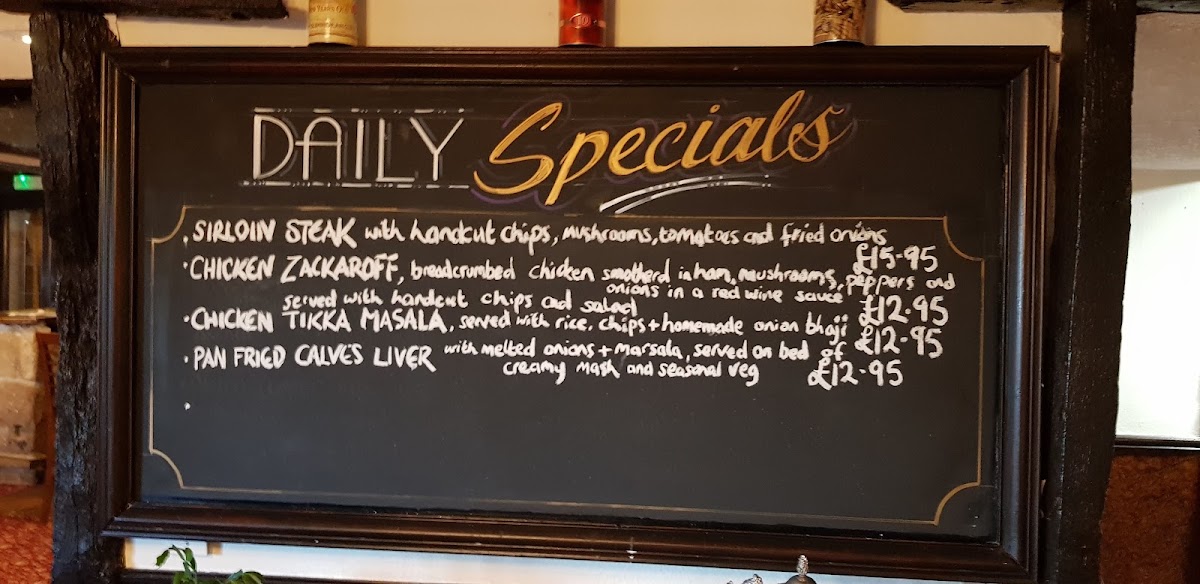 DAILY Specials
· SIRLOIN STEAK with handcut chips, mushrooms, tomatoes and fried onions
£15-95
· CHICKEN ZACKAROFF, breadcrumbed chicken smotherd in ham, mushrooms, peppers and
onions in a red wine sauce
served with handcut chips and salad £12.95
· CHICKEN TIKKA MASALA, served with rice, chips + homemade onion bhaji £12-95
· PAN FRIED CALVES LIVER with melted onions + marsala, served on bed of
creamy mash and seasonal veg £12-95
·